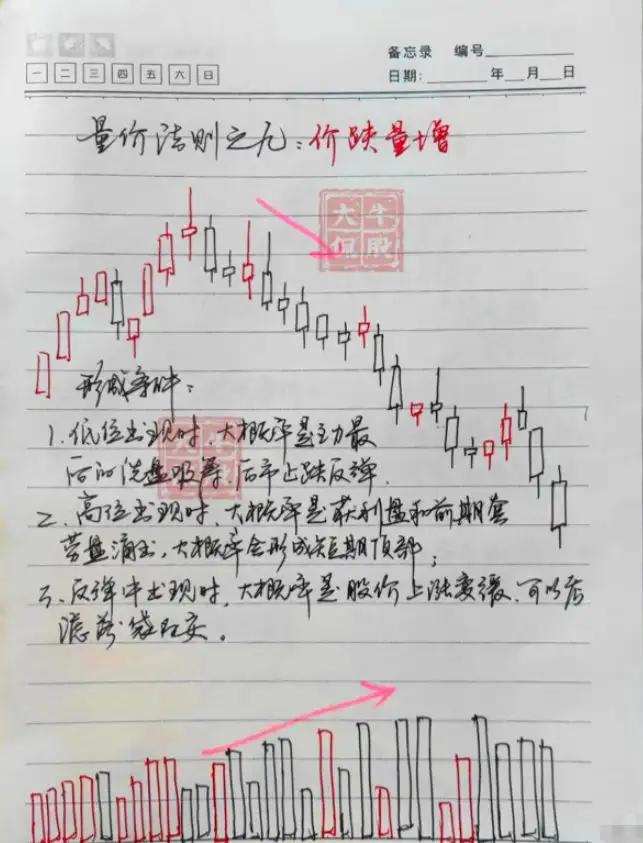 备忘录 编号
一 二 三 四 五 六 日
日期: 年 月 日
量价法则之九:价跌量增
大牛
侃股
形成条件:
1.低位出现时,大概率是主力最
后的洗盘吸筹,后市止跌反弹.
2.高位出现时,大概率是获利盘和前期套
劳盘涌出,大概率会形成短期顶部;
3.反弹中出现时,大概率是股价上涨变缓,可以考
虑落袋为安.